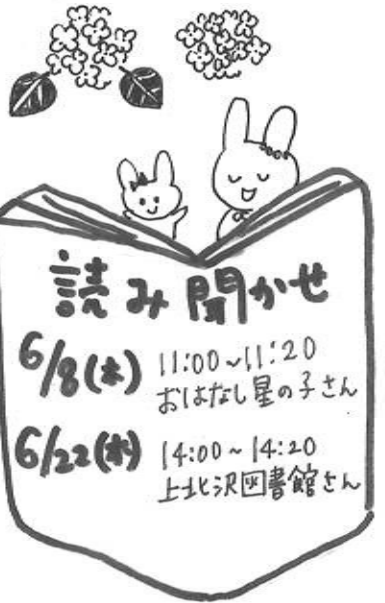 読み聞かせ
6/8(木) 11:00~11:20
おはなし星の子さん
6/22(木) 14:00~14:20
上北沢図書館さん